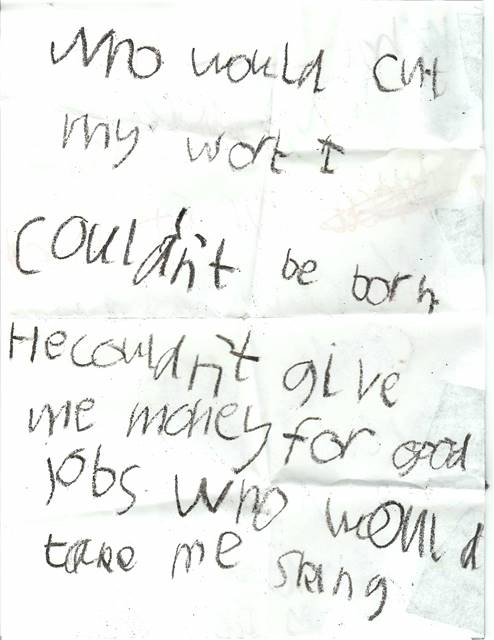 Who would cut
my wort I
couldn't be born
He couldn't give
me money for good
jobs who would
take me sking